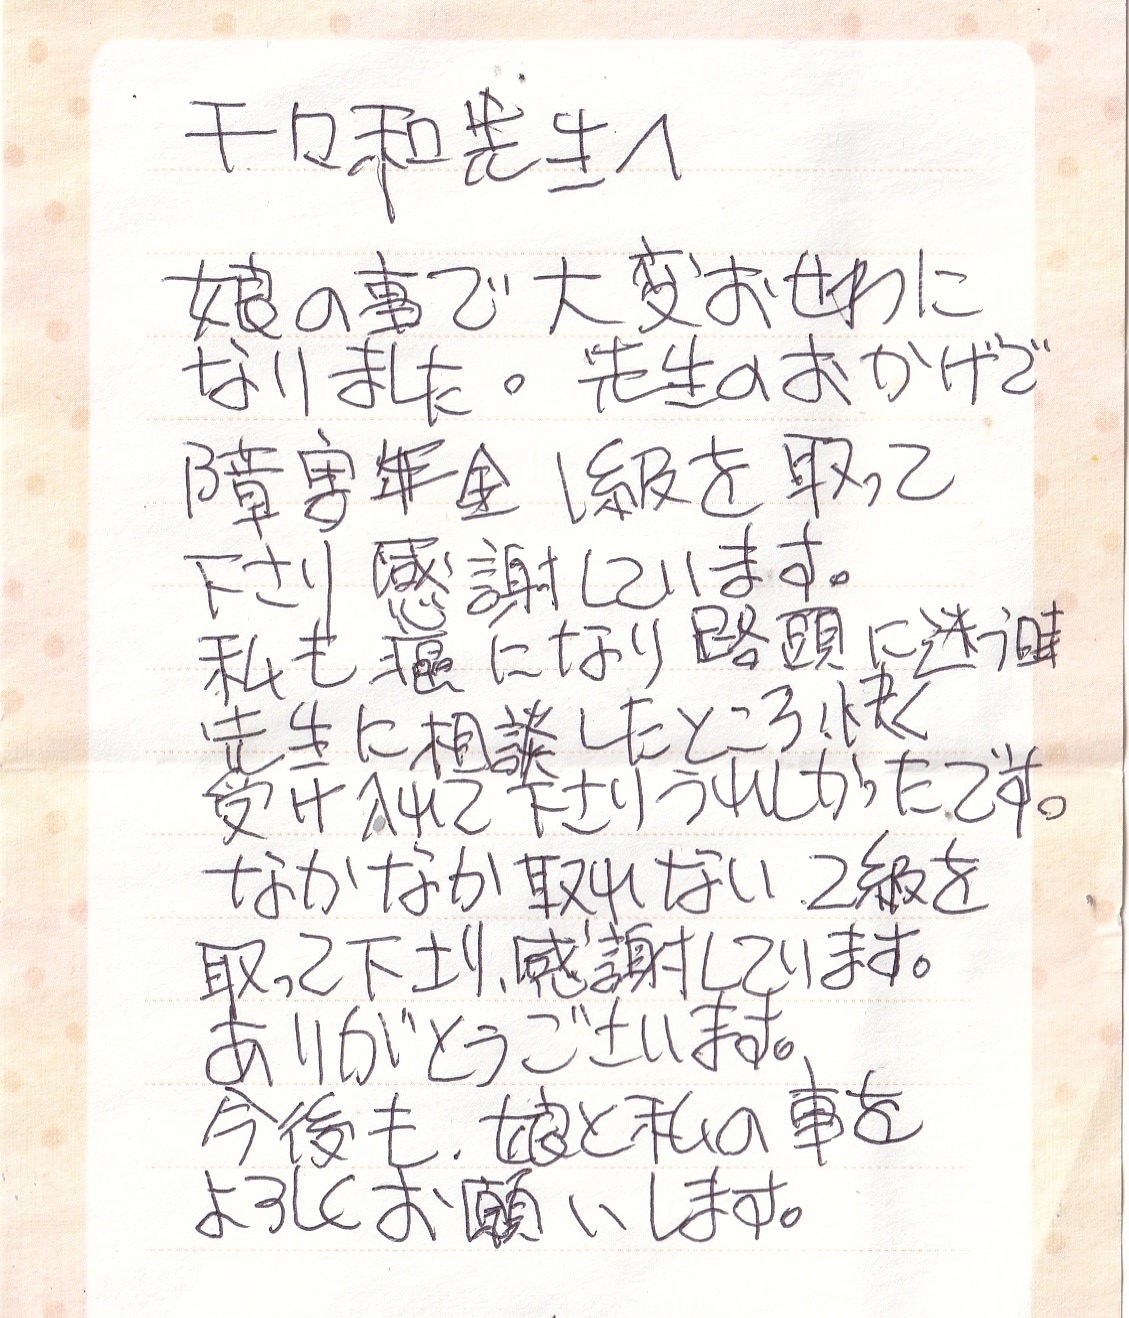 千々和先生へ
娘の事で大変おせわに
なりました。先生のおかげで
障害年金1級を取って
下さり感謝しています。
私も癌になり路頭に迷う時
先生に相談したところ、快く
受け入れて下さりうれしかったです。
なかなか取れない2級を
取って下さり、感謝しています。
ありがとうございます。
今後も、娘と私の事を
よろしくお願いします。